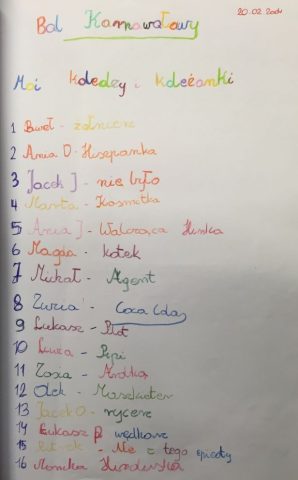 Bal Karnawałowy
20.02.2001
Moi koledzy i koleżanki
1 Paweł - żołnierz
2 Ania D - Hiszpanka
3 Jacek J - nie było
4 Marta - Kosmitka
5 Ania J - Walcząca
6 Magda - kotek
7 Michał - Agent
8 Zuzia - Coca Cola
9 Łukasz -
10 Luiza - Pipi
11 Zosia -
12 Olek - Muszkieter
13 Jacek O - rycerz
14 Łukasz P wędkarz
15 - Nie z tego
16 Monika Hinduska